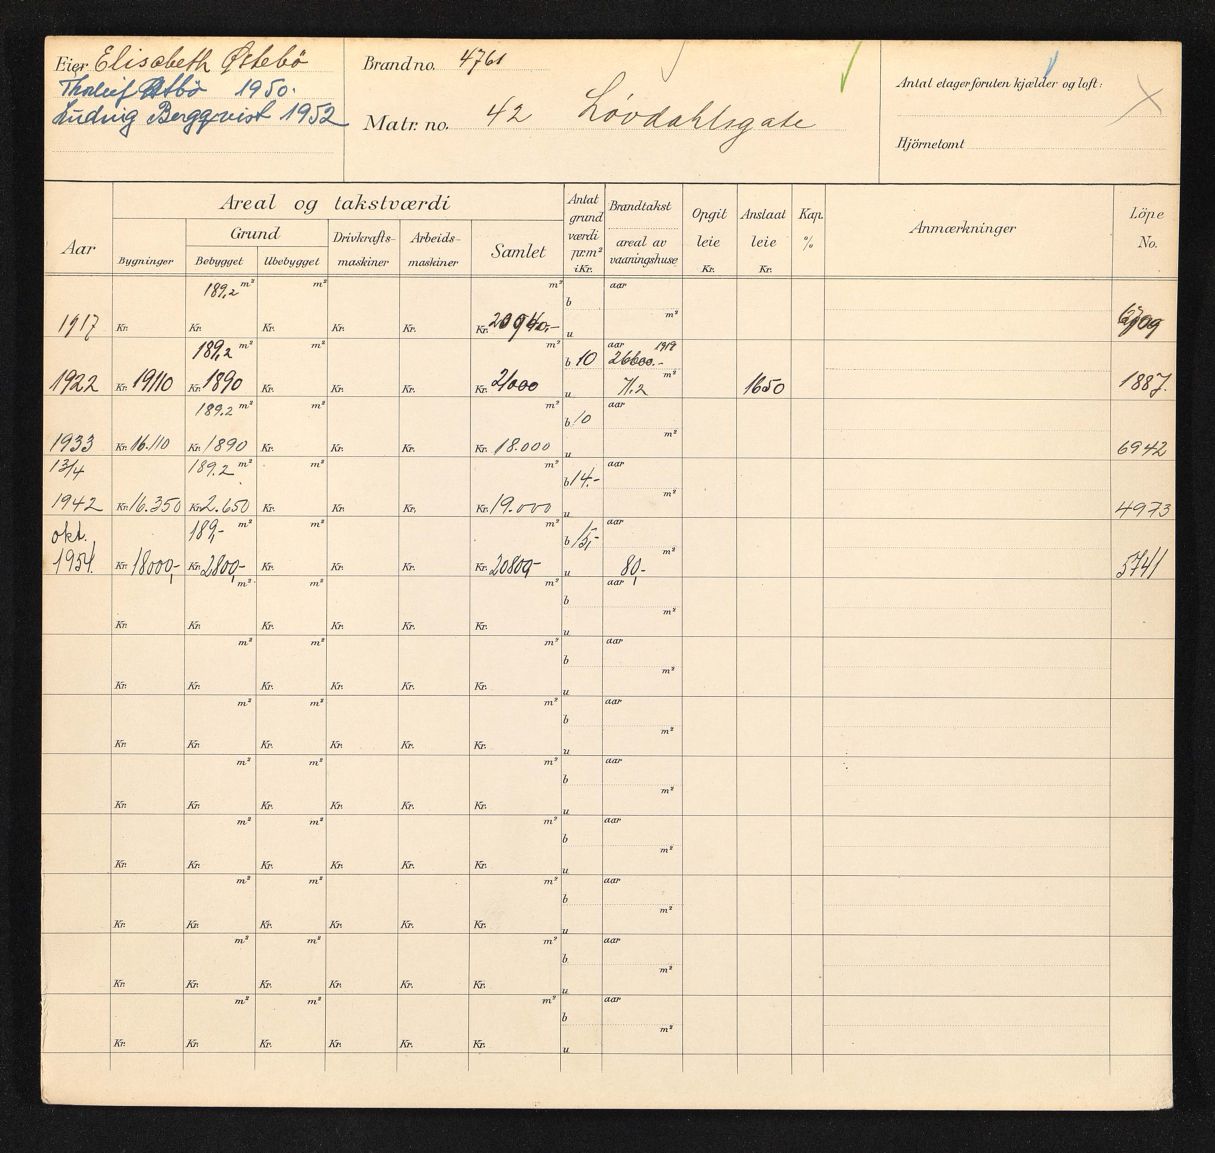 Eier Elisabeth Østebö
Thorleif Østbö 1950.
Ludvig Bergqvist 1952
Brand no. 4761
Matr. no. 42 Løvdahlsgate
Antal etager foruten kjælder og loft:
Hjörnetomt
Aar
Areal og takstværdi
Bygninger
Grund
Bebygget Ubebygget
Drivkrafts-maskiner
Arbeids-maskiner
Samlet
Antat grund værdi pr. m² i Kr.
Brandtakst
areal av vaaningshuse
Opgit leie Kr.
Anslaat leie Kr.
Kap. %
Anmærkninger
Löpe No.
189,2 m² m² m² b aar
1917 Kr. Kr. Kr. Kr. Kr. Kr. u m²
189,2 m² m² m² b 10 aar 1919 26600.-
1922 Kr. 19110 Kr. 1890 Kr. Kr. Kr. Kr. 21000 u 71.2 m² 1650 1887.
189.2 m² m² m² b 10 aar
1933 Kr. 16.110 Kr. 1890 Kr. Kr. Kr. Kr. 18.000 u m² 6942
13/4 189.2 m² m² m² b 14.- aar
1942 Kr. 16.350 Kr. 2.650 Kr. Kr. Kr. Kr. 19.000 u m² 4973
okt. 189,- m² m² m² b 15,- aar
1954. Kr. 18000,- Kr. 2800,- Kr. Kr. Kr. Kr. 20800,- u 80,- m² 5741
m² m² m² b aar
Kr. Kr. Kr. Kr. Kr. Kr. u m²
m² m² m² b aar
Kr. Kr. Kr. Kr. Kr. Kr. u m²
m² m² m² b aar
Kr. Kr. Kr. Kr. Kr. Kr. u m²
m² m² m² b aar
Kr. Kr. Kr. Kr. Kr. Kr. u m²
m² m² m² b aar
Kr. Kr. Kr. Kr. Kr. Kr. u m²
m² m² m² b aar
Kr. Kr. Kr. Kr. Kr. Kr. u m²
m² m² m² b aar
Kr. Kr. Kr. Kr. Kr. Kr. u m²
m² m² m² b aar
Kr. Kr. Kr. Kr. Kr. Kr. u m²